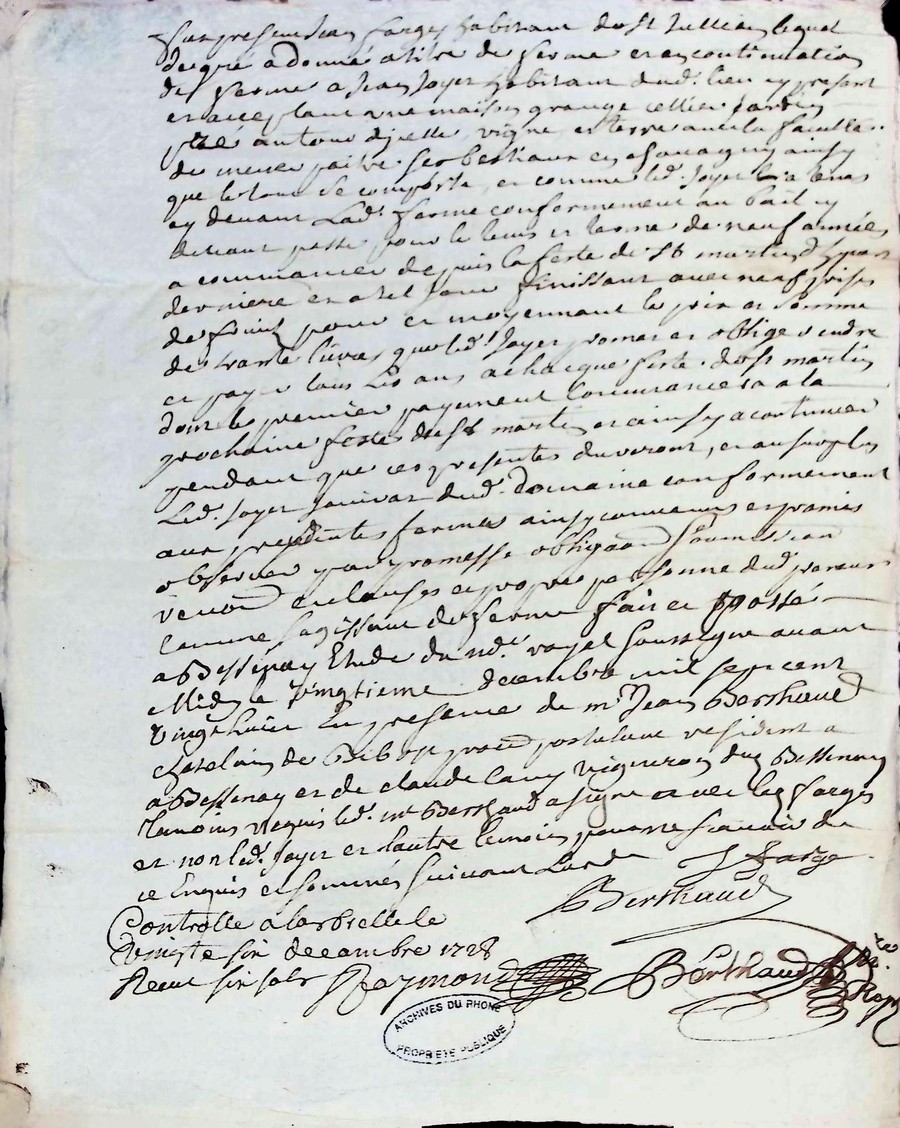 Fut present Jean farges habitant de St Jullien lequel
de gré a donné a titre de ferme et en continuation
de ferme a Jean Joyet habitant dud. lieu cy present
et acceptant une maison grange cellier Jardin
pré autour dicelle, vigne et terre avec la faculté
de mener paitre ses bestiaux en ainsy
que le tout se comporte, et comme led. Joyet la tenu
cy devant Lad. ferme conformement au bail cy
devant passé pour le tems et terme de neuf années
a commancer depuis la feste de St martin
derniere et a tel jour finissant avec neuf prises
de fruit pour et moyennant le prix et somme
de trante livres que led. Joyet promet et oblige rendre
et payer tous les ans a chacque feste de St martin
dont le premier payement commancera a la
prochaine feste de St martin et ainsy a continuer
pendant que ces presentes dureront, et au surplus
Led. Joyet jouira dud. domaine conformement
aux precedentes fermes ainsy convenu et promis
observer par promesse obligaon soumission
renon et clauses et propre personne dud. preneur
comme sagissant de ferme fait et passé
a Bessenay Etude du no.re royal soussigné avant
Midy le vingtieme decembre mil sept cent
vingt huit En presence de mr Jean Berthaud
Chatelain de Bibost postulant resident a
a Bessenay et de claude vigneron dud Bessenay
temoins requis led. mr Berthaud a signé avec led farges
et non led. Joyet et lautre temoin pour ne scavoir de
ce Enquis et sommés suivant Lord.
J farge
Berthaud
Controllé a larbrelle le
vingte six decembre 1728
Receu six sols Raymond
Berthaud N.re R.
ARCHIVES DU RHONE
PROPRIETE PUBLIQUE